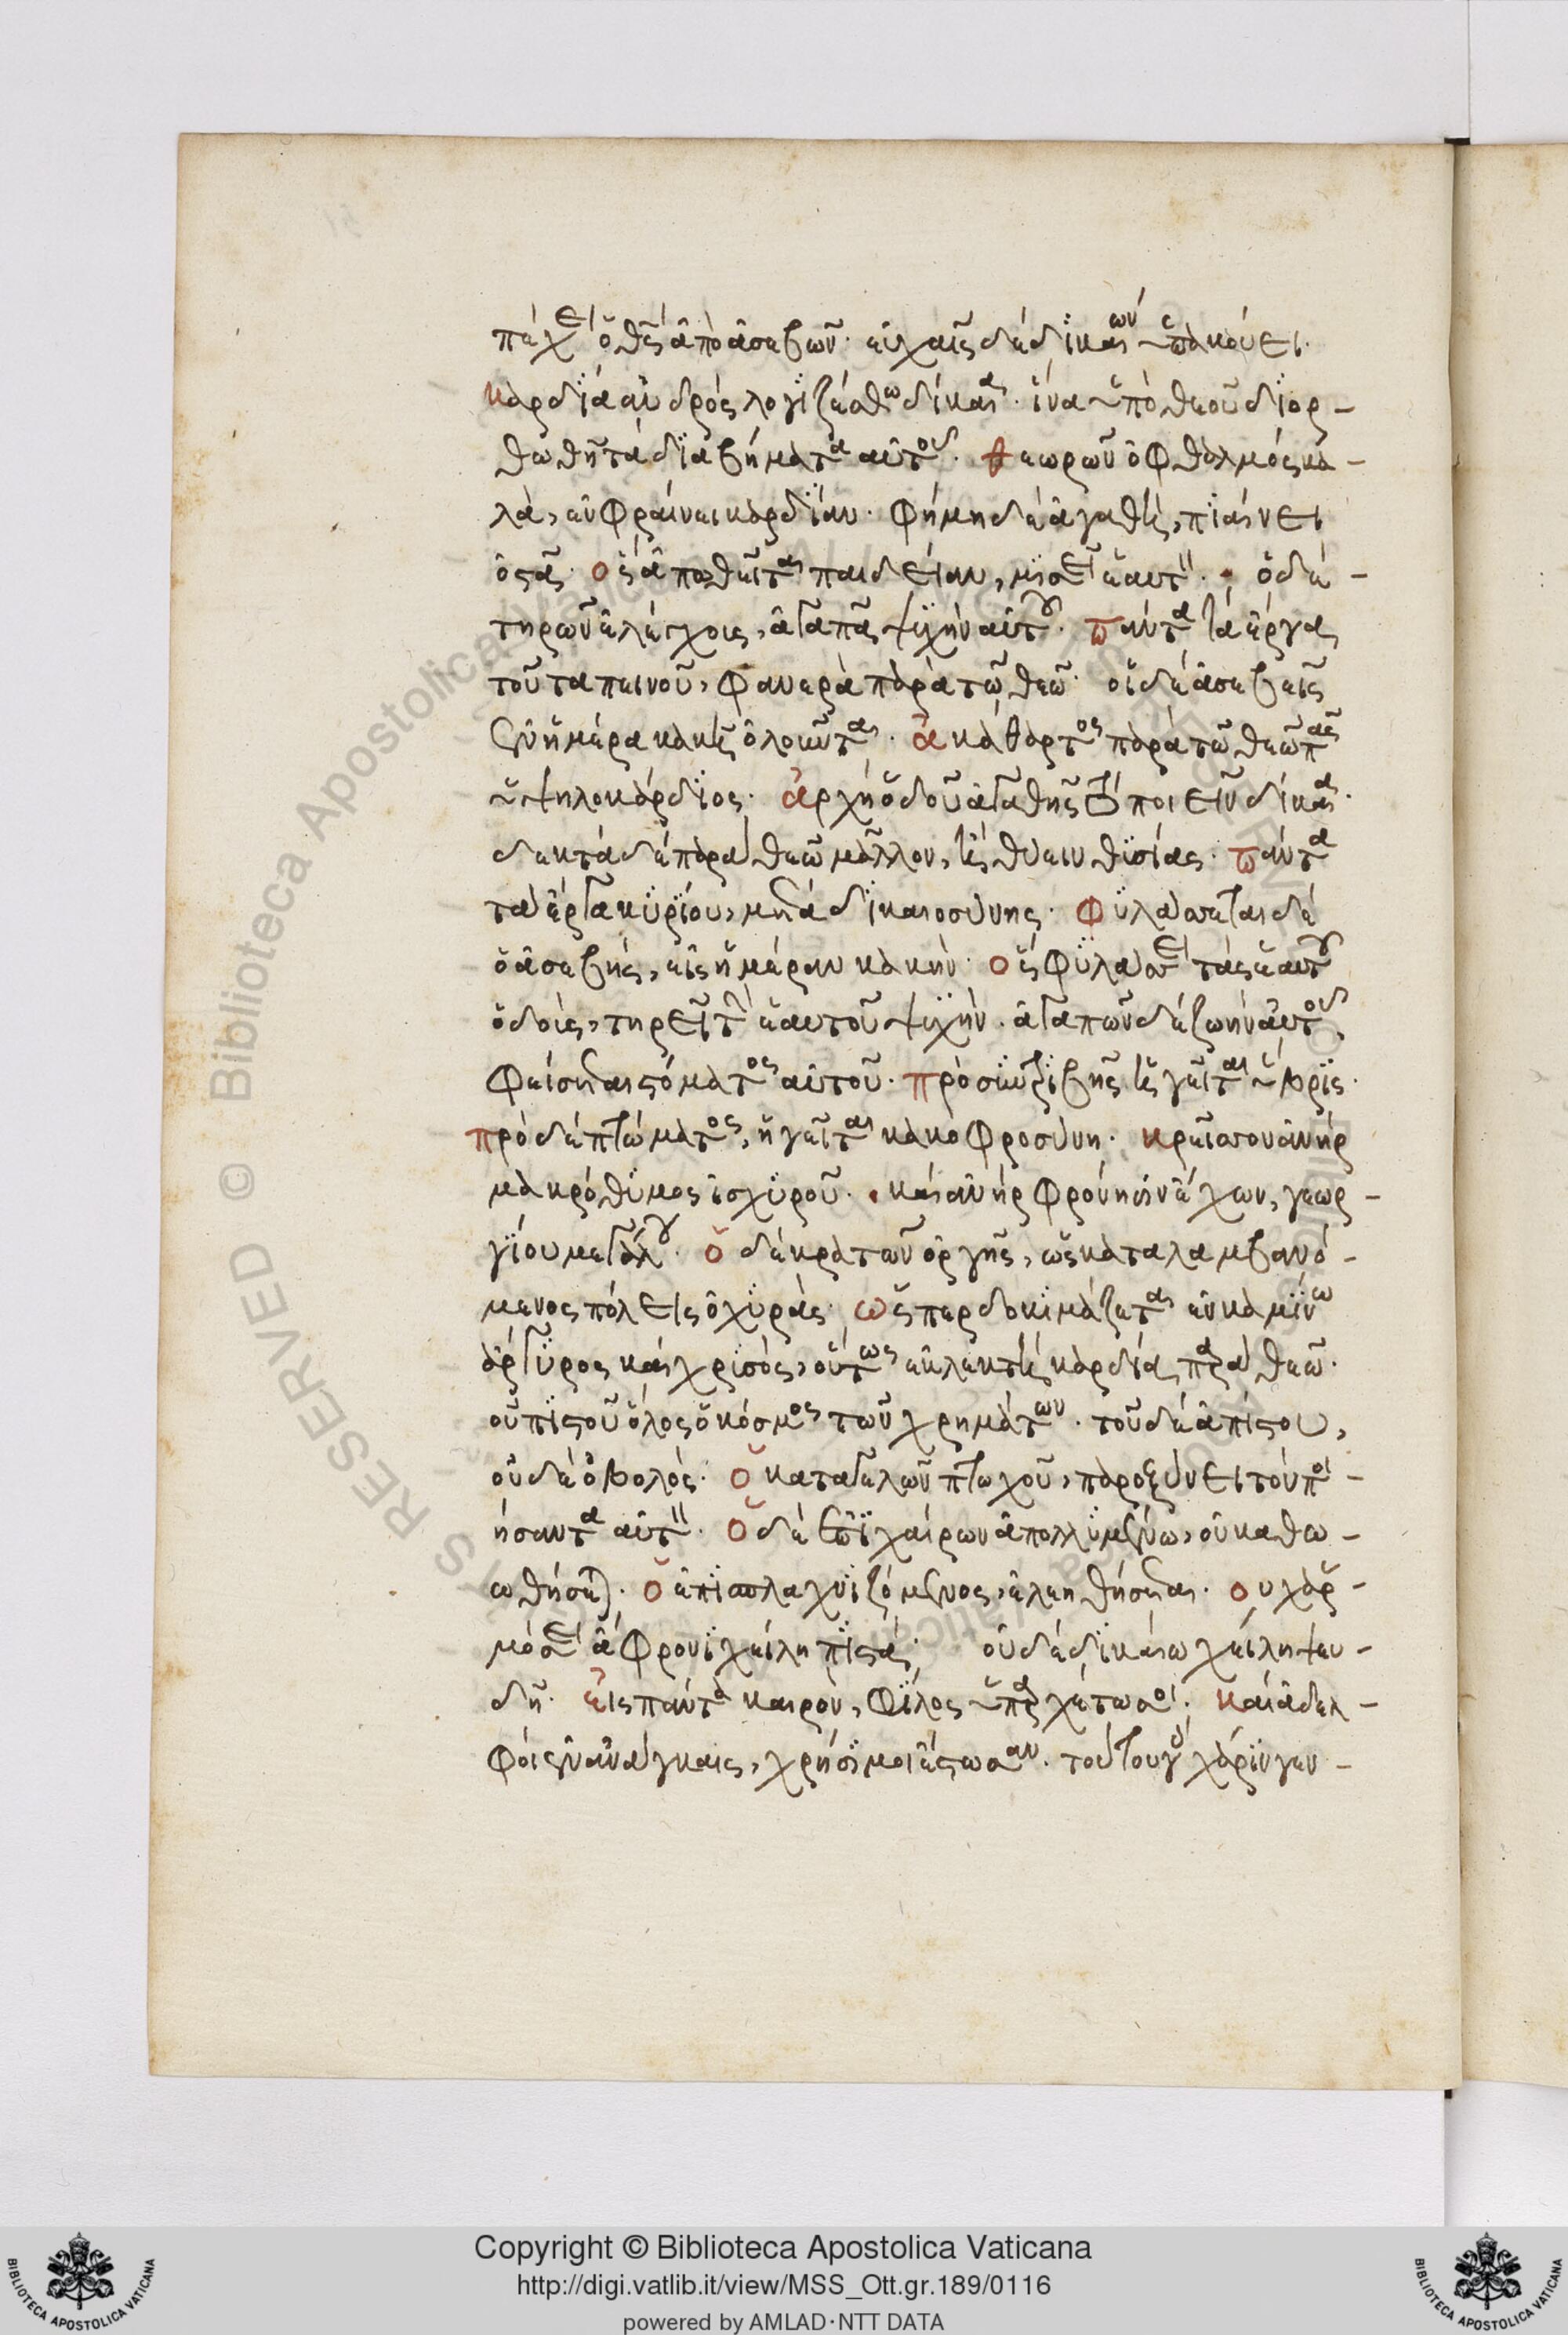 πέχει ὁ θς ἀπὸ ἀσεβῶν· εὐχαῖς δὲ δικαίων ὑπακούει·
καρδία ἀνδρὸς λογιζέσθω δίκαια· ἵνα ὑπὸ θεοῦ διορ-
θωθῆ τὰ διαβήματα αὐτοῦ. θεωρῶν ὀφθαλμὸς κα-
λὰ, εὐφραίνει καρδίαν. φήμη δὲ ἀγαθὴ, πιαίνει
ὀστᾶ. ὃς ἀπωθεῖται παιδείαν, μισεῖ ἑαυτόν. ὁ δὲ
τηρῶν ἐλέγχους, ἀγαπᾶ ψυχὴν αὐτοῦ. πάντα τὰ ἔργα
τοῦ ταπεινοῦ, φανερὰ παρὰ τῷ θεῷ. οἱ δὲ ἀσεβεῖς
ἐν ἡμέρα κακῆ ὀλοῦνται. ἀκάθαρτος παρὰ τῷ θεῷ πᾶς
ὑψηλοκάρδιος. ἀρχὴ ὁδοῦ ἀγαθῆς τὸ ποιεῖν δίκαια.
δεκτὰ δὲ παρὰ θεῷ μᾶλλον, ἢ θύειν θυσίας. πάντα
τὰ ἔργα κυρίου, μετὰ δικαιοσύνης. φυλάσσεται δὲ
ὁ ἀσεβὴς, εἰς ἡμέραν κακήν. ὃς φυλάσσει τὰς ἑαυτοῦ
ὁδοὺς, τηρεῖ τὴν ἑαυτοῦ ψυχὴν. ἀγαπῶν δὲ ζωὴν αὐτοῦ,
φείσεται στόματος αὐτοῦ. πρὸ συντριβῆς ἡγεῖται ὕβρις.
πρὸ δὲ πτώματος, ἡγεῖται κακοφροσύνη. κρείσσων ἀνὴρ
μακρόθυμος ἰσχυροῦ. καὶ ἀνὴρ φρόνησιν ἔχων, γεωρ-
γίου μεγάλου. ὁ δὲ κρατῶν ὀργῆς, ὡς καταλαμβανό-
μενος πόλεις ὀχυράς. ὥσπερ δοκιμάζεται ἐν καμίνω
ἄργυρος καὶ χρυσὸς, οὕτως ἐκλεκτὴ καρδία παρὰ θεῷ.
οὗ πιστοῦ ὅλος ὁ κόσμος τῶν χρημάτων. τοῦ δὲ ἀπίστου,
οὐδὲ ὀβολός. ὁ καταγελῶν πτωχοῦ, παροξύνει τὸν ποι-
ήσαντα αὐτόν. ὁ δὲ ἐπιχαίρων ἀπολλυμένω, οὐκ ἀθω-
ωθήσεται. ὁ ἐπισπλαχνιζόμενος, ἐλεηθήσεται. οὐχ ἁρ-
μόσει ἄφρονι χείλη πιστά. οὐδὲ δικαίω χείλη ψευ-
δῆ. εἰς πάντα καιρὸν, φίλος ὑπαρχέτω σοι. καὶ ἀδελ-
φοὶ ἐν ἀνάγκαις, χρήσιμοι ἔστωσαν. τούτου γὰρ χάριν γεν-
BIBLIOTECA APOSTOLICA VATICANA
Copyright © Biblioteca Apostolica Vaticana
http://digi.vatlib.it/view/MSS_Ott.gr.189/0116
powered by AMLAD·NTT DATA
BIBLIOTECA APOSTOLICA VATICANA